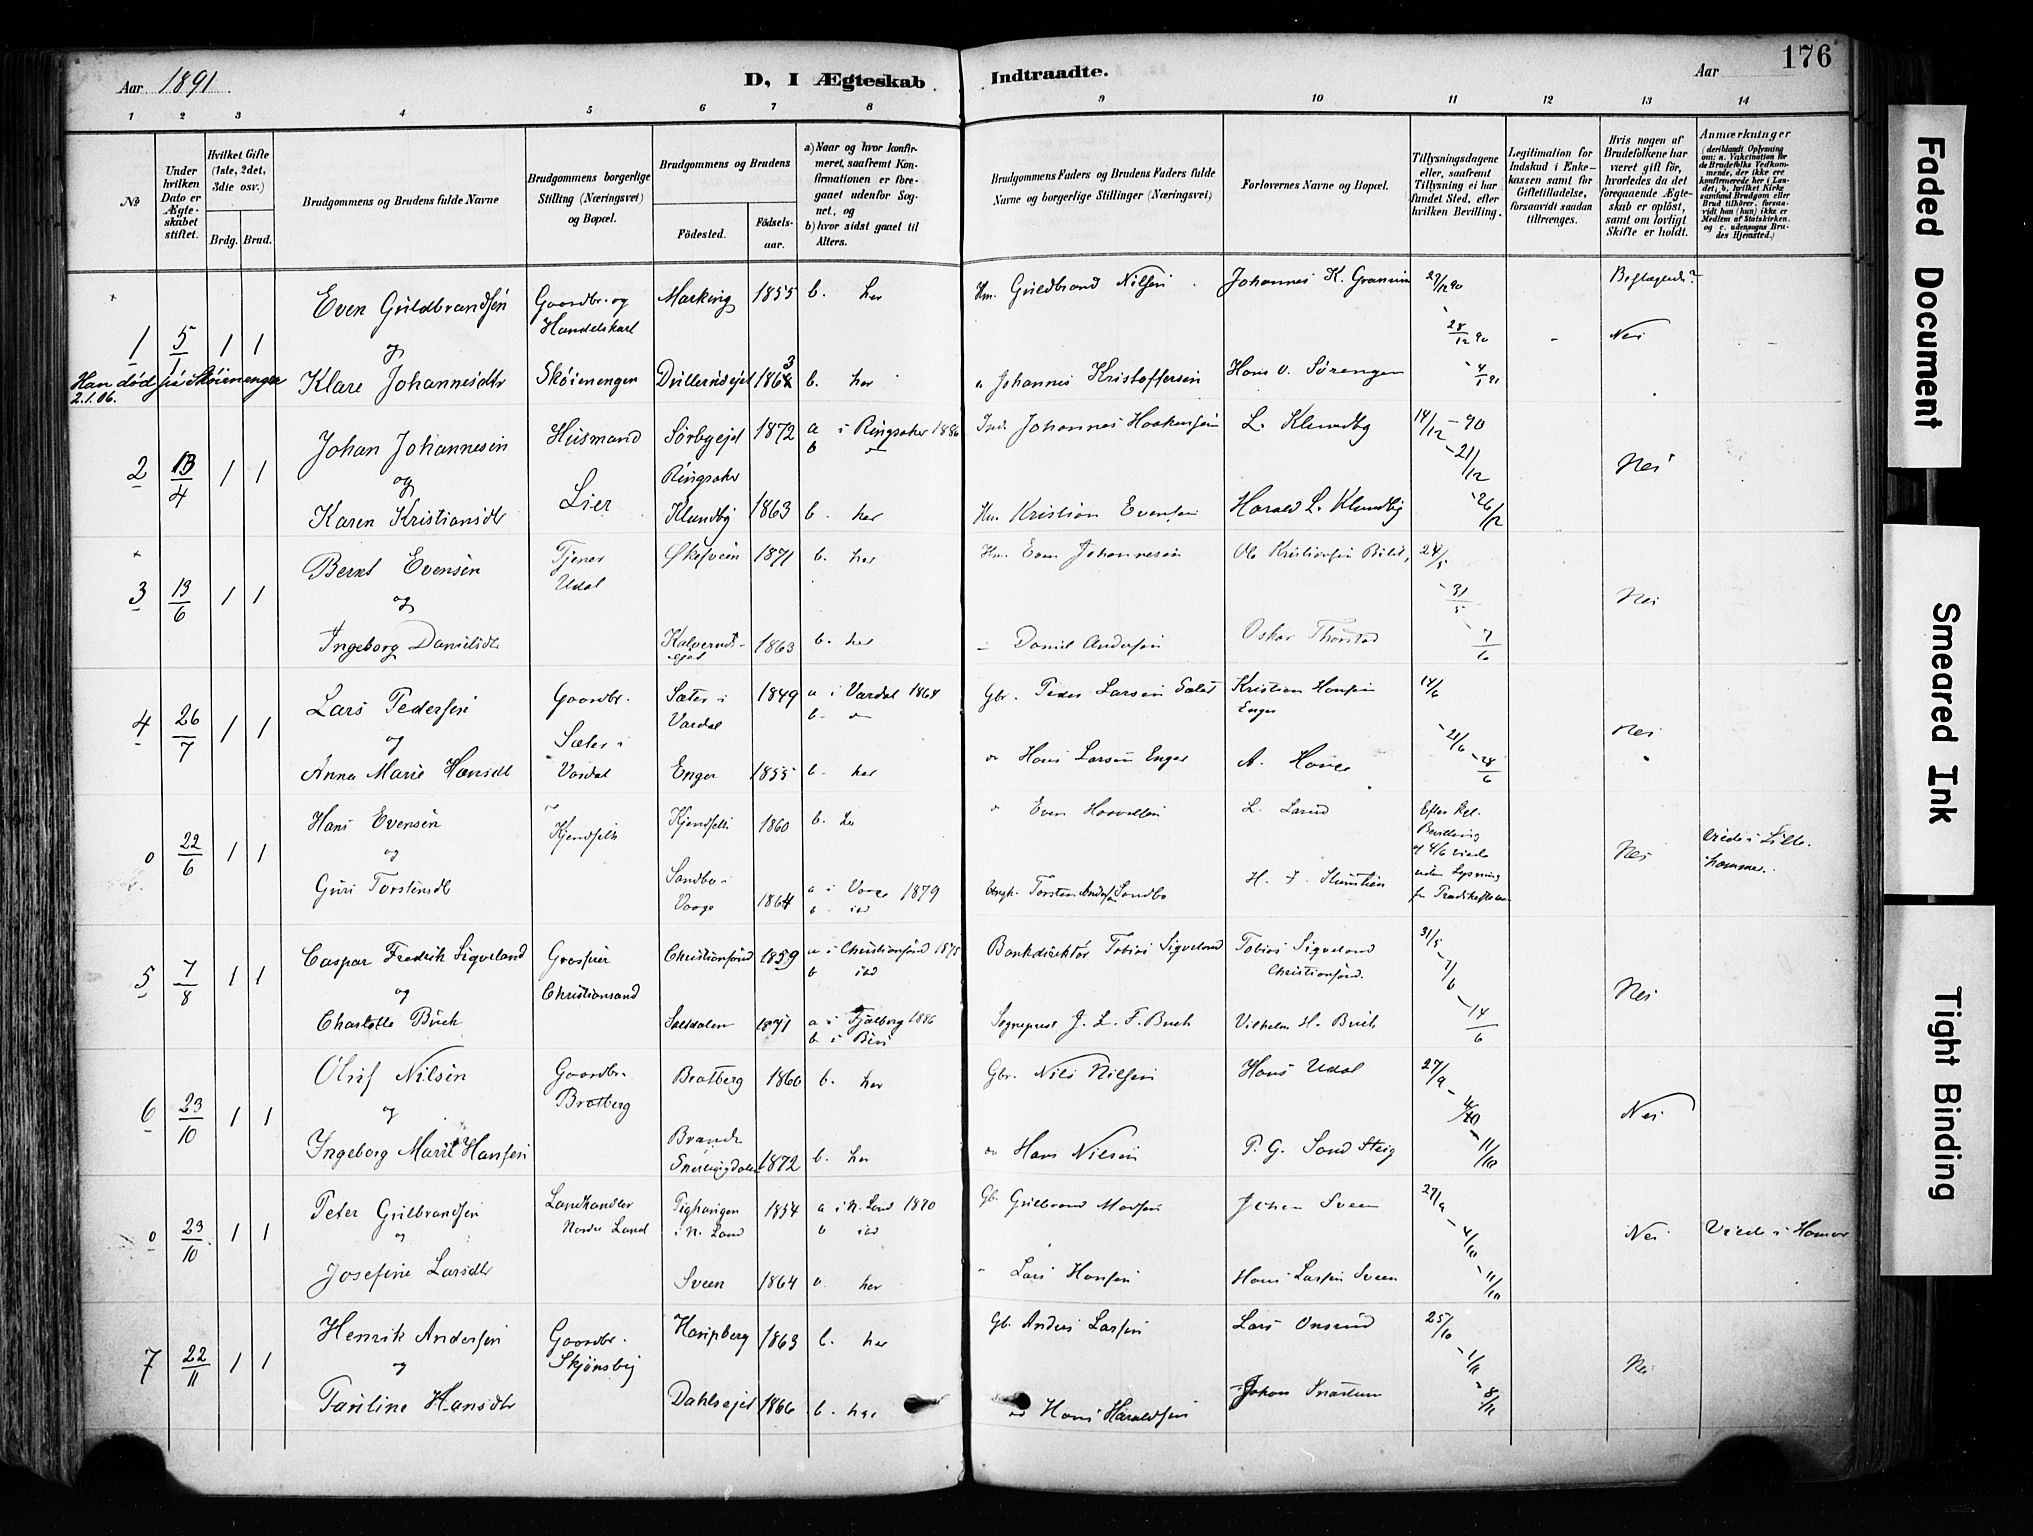 176
Aar 1891.
D, I Ægteskab Indtraadte.
Aar
1 2 3 4 5 6 7 8 9 10 11 12 13 14
No
Under hvilken Dato er Ægteskabet stiftet.
Hvilket Gifte (1ste, 2det, 3die osv.)
Brdg. Brud.
Brudgommens og Brudens fulde Navne
Brudgommens borgerlige Stilling (Næringsvei) og Bopæl.
Brudgommens og Brudens
Födested.
Födselsaar.
a) Naar og hvor konfirmeret, saafremt Konfirmationen er foregaaet udenfor Sognet, og
b) hvor sidst gaaet til Alters.
Brudgommens Faders og Brudens Faders fulde Navne og borgerlige Stillinger (Næringsvei)
Forlovernes Navne og Bopæl.
Tillysningsdagene eller, saafremt Tillysning ei har fundet Sted, efter hvilken Bevilling.
Legitimation for Indskud i Enkekassen samt for Giftetilladelse, forsaavidt saadan tiltrænges.
Hvis nogen af Brudefolkene har været gift för, hvorledes da det foregaaende Ægteskab er oplöst, samt om lovligt Skifte er holdt.
Anmærkninger
(deriblandt Oplysning om: a. Vakcination for de Brudefolks Vedkommende, der ikke ere konfirmerede her i Landet; b. hvilket Kirkesamfund Brudgom eller Brud tilhörer, forsaavidt han (hun) ikke er Medlem af Statskirken. og c. udensogns Brudes Hjemsted.)
1 5/1 1 1 Even Guldbrandsen Gaardbr. og Handelskarl Marking 1855 b. her Hm. Guldbrand Nilsen Johannes K. Granum 27/12 90
og 28/12 90 - Nei
Klare Johannesdtr Sköienengen 1863 b. her " Johannes Kristoffersen Hans O. Sörengen - 4/1 91
Han död på Sköienengen
2.1.06.
2 13/4 1 1 Johan Johannesen Husmand Sörbyejet 1872 a i Ringsaker 1886 Ind. Johannes Haakensen L. Klundby 14/12 - 90
og Lier Ringsaker b - 21/12 Nei
Karen Kristiansdtr Klundby 1863 b. her Hm. Kristian Evensen Harald L. Klundby - 26/12
3 13/6 1 1 Bernt Evensen Tjener Udal 1871 b. her Hm. Even Johannesen 24/5
og - 31/5 Nei
Ingeborg Danielsdtr 1863 b. her Daniel Andersen Oskar Thorstad 7/6
4 26/7 1 1 Lars Pedersen Gaardbr. Sæter i Vardal 1849 a i Vardal 1864 Gbr. Peder Larsen Kristian Hansen Enger 14/6
og Sæter i Vardal b. - 21/6 Nei
Anna Marie Hansdtr Enger 1855 b. her Hans Larsen Enger - 28/6
0 22/6 1 1 Hans Evensen Kjendseth Kjendseth 1860 b. her L. Larud Efter kgl. Bevilling
og Nei Viede i Lillehammer.
Guri Torstensdtr Sandbo i Vaage 1864 a i Vaage 1879 b. ibd Torsten Andersen Sandbo
5 7/8 1 1 Caspar Fredrik Sigveland Grosserer Christiansand 1859 a i Christiansand 1875 Bankdirektör Tobias Sigveland Tobias Sigveland Christiansand. 31/5
og Christiansand b ibd - 7/6 Nei
Charlotte Buch Saltdalen 1871 a i 1886 b i Biri Sognepræst J. L. F. Buch Vilhelm H. Buch - 14/6
6 23/10 1 1 Oluf Nilsen Gaardbr. Bratberg Bratberg 1860 b. her Gbr. Nils Nilsen Hans Udal 27/9
og - 4/10 Nei
Ingeborg Marie Hansen Snertingdalen 1872 b. her Hans Nilsen P. G. Sand Steig - 11/10
0 23/10 1 1 Peter Gulbrandsen Landhandler Nordre Land i N. Land 1854 a i N. Land 1870 Gb. Gulbrand Madsen Johan Sveen 27/9
og b ibd - 4/10 Nei Viede i Hamar
Josefine Larsdtr Sveen 1864 her Lars Hansen Hans Larsen Sveen 11/10
7 22/11 1 1 Henrik Andersen Gaardbr. Skjönsby 1863 b. her Gb. Anders Larsen Lars Onsrud 25/10
og - 1/11 Nei
Pauline Hansdtr Dahlsejet 1866 b. her Hans Haraldsen Johan Snartum - 8/11
Faded Document
Smeared Ink
Tight Binding